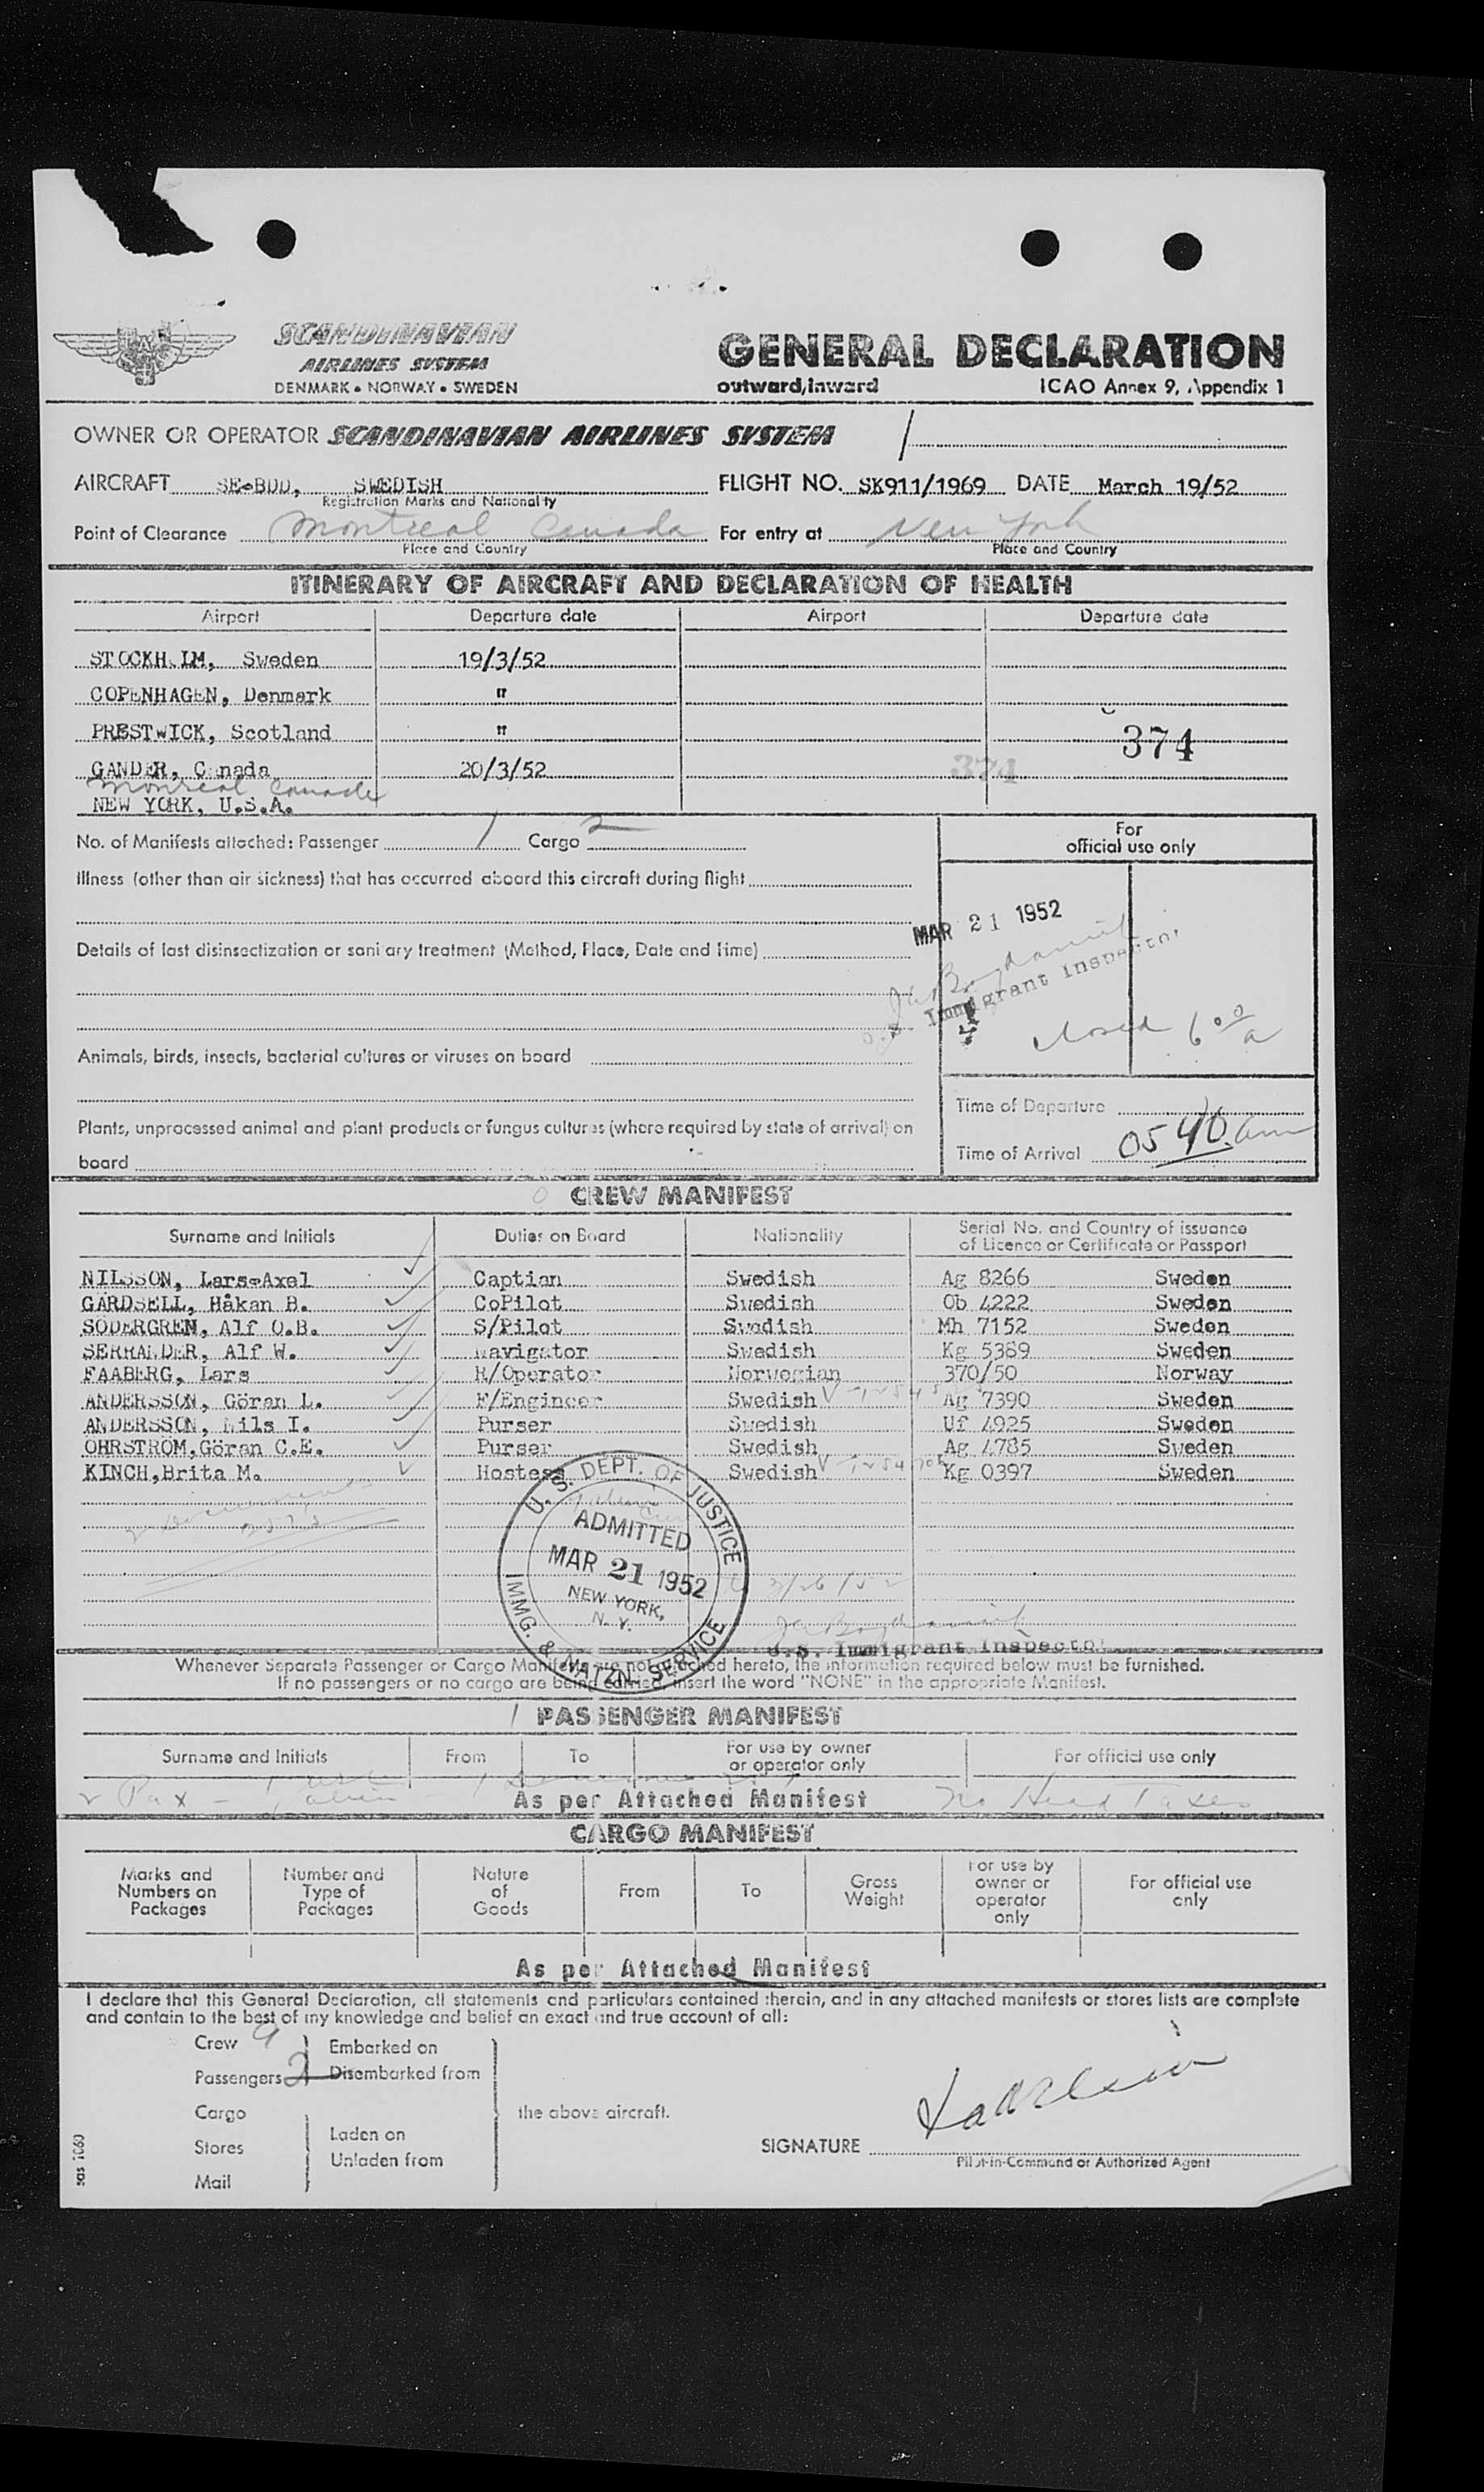 SCANDINAVIAN
AIRLINES SYSTEM
DENMARK • NORWAY • SWEDEN
GENERAL DECLARATION
outward, inward ICAO Annex 9, Appendix 1
OWNER OR OPERATOR SCANDINAVIAN AIRLINES SYSTEM /
AIRCRAFT SE-BDD, SWEDISH FLIGHT NO. SK911/1969 DATE March 19/52
Registration Marks and Nationality
Point of Clearance Montreal Canada For entry at New York
Place and Country Place and Country
ITINERARY OF AIRCRAFT AND DECLARATION OF HEALTH
Airport Departure date Airport Departure date
STOCKHOLM, Sweden 19/3/52
COPENHAGEN, Denmark "
PRESTWICK, Scotland "
374
GANDER, Canada 20/3/52 374
Montreal Canada
NEW YORK, U.S.A.
No. of Manifests attached: Passenger 1 Cargo 2
For
official use only
Illness (other than air sickness) that has occurred aboard this aircraft during flight
MAR 21 1952
Details of last disinsectization or sanitary treatment (Method, Place, Date and Time)
U.S. Immigrant Inspector
closed 6 00 a
Animals, birds, insects, bacterial cultures or viruses on board
Time of Departure
Plants, unprocessed animal and plant products or fungus cultures (where required by state of arrival) on
board
Time of Arrival 0540 am
CREW MANIFEST
Surname and Initials Duties on Board Nationality Serial No. and Country of issuance
of Licence or Certificate or Passport
NILSSON, Lars-Axel Captian Swedish Ag 8266 Sweden
GÅRDSELL, Håkan B. CoPilot Swedish Ob 4222 Sweden
SÖDERGREN, Alf O.B. S/Pilot Swedish Mh 7152 Sweden
SERRANDER, Alf W. Navigator Swedish Kg 5389 Sweden
FAABERG, Lars R/Operator Norwegian 370/50 Norway
ANDERSSON, Göran L. F/Engineer Swedish Ag 7390 Sweden
ANDERSSON, Nils I. Purser Swedish Uf 4925 Sweden
ÖHRSTRÖM, Göran C.E. Purser Swedish Ag 4785 Sweden
KINCH, Brita M. Hostess Swedish Kg 0397 Sweden
U. S. DEPT. OF JUSTICE
ADMITTED
MAR 21 1952
NEW YORK,
N. Y.
IMMG. & NATZN. SERVICE
3/26/52
U.S. Immigrant Inspector
Whenever Separate Passenger or Cargo Manifests are not attached hereto, the information required below must be furnished.
If no passengers or no cargo are being carried, insert the word "NONE" in the appropriate Manifest.
/ PASSENGER MANIFEST
Surname and Initials From To For use by owner
or operator only For official use only
2 Pax - As per Attached Manifest No Head Taxes
CARGO MANIFEST
Marks and
Numbers on
Packages
Number and
Type of
Packages
Nature
of
Goods
From
To
Gross
Weight
For use by
owner or
operator
only
For official use
only
As per Attached Manifest
I declare that this General Declaration, all statements and particulars contained therein, and in any attached manifests or stores lists are complete
and contain to the best of my knowledge and belief an exact and true account of all:
Crew 9 Embarked on
Passengers 2 Disembarked from
Cargo the above aircraft.
Laden on
Stores
Unladen from
SIGNATURE
Pilot-in-Command or Authorized Agent
Mail
sas 1060